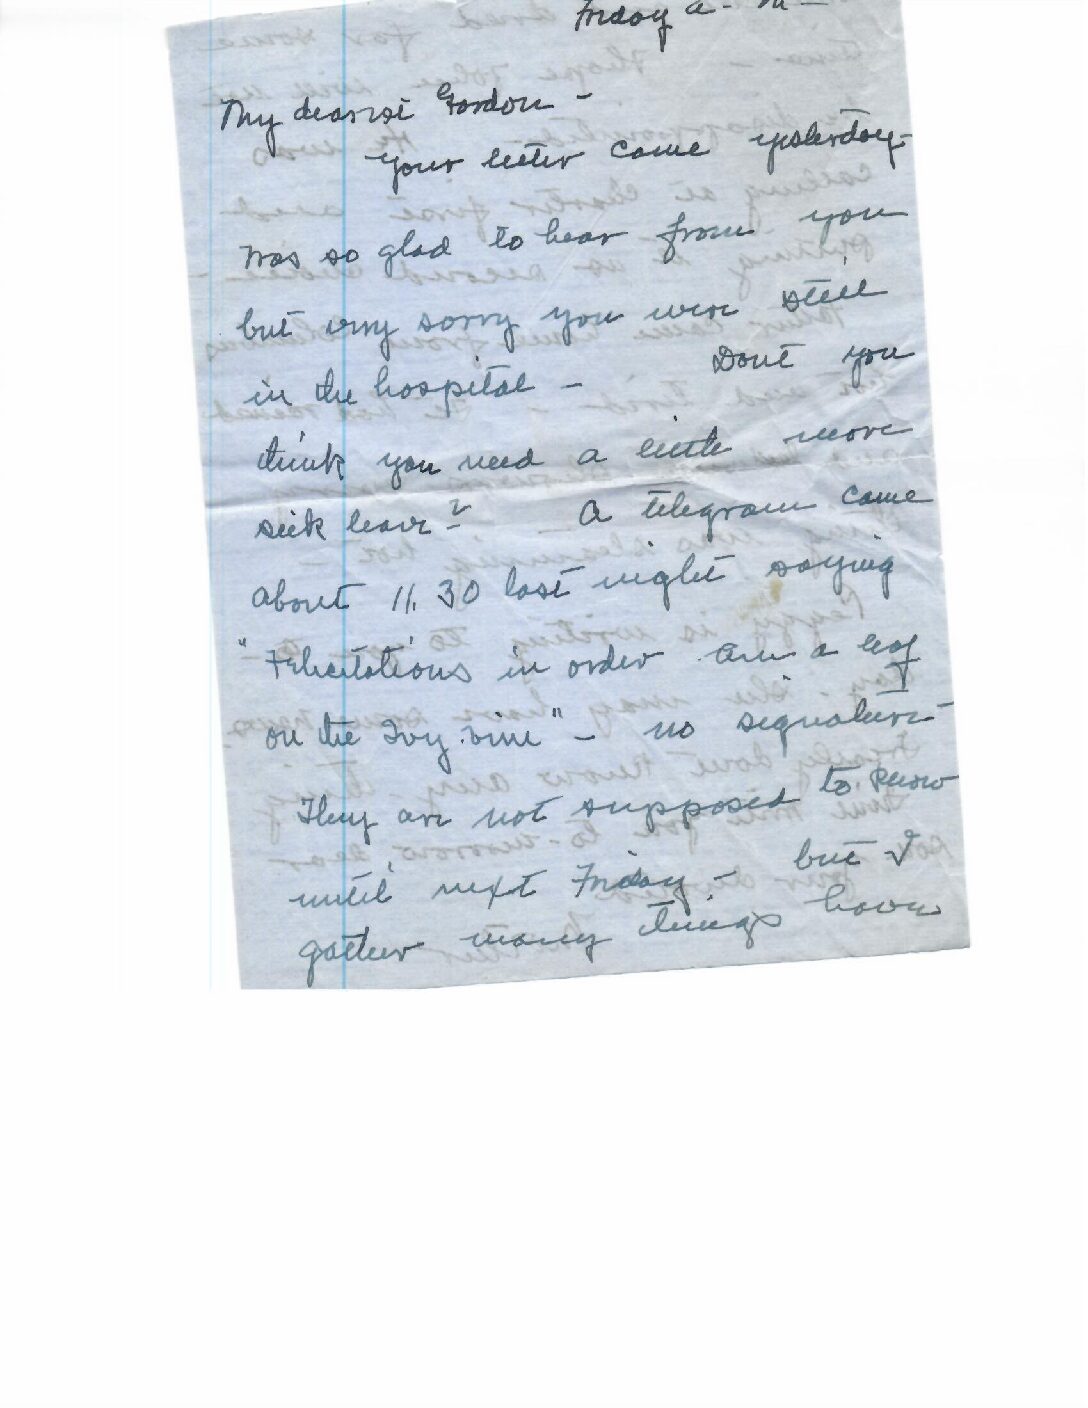 Friday a - m -
My dearest Gordon -
your letter came yesterday -
was so glad to hear from you
but very sorry you were still
in the hospital - Dont you
think you need a little more
sick leave? - A telegram came
about 11.30 last night saying
"Felicitations in order am a leaf
on the Ivy vine" - no signature -
They are not supposed to know
until next Friday - but I
gather many things have